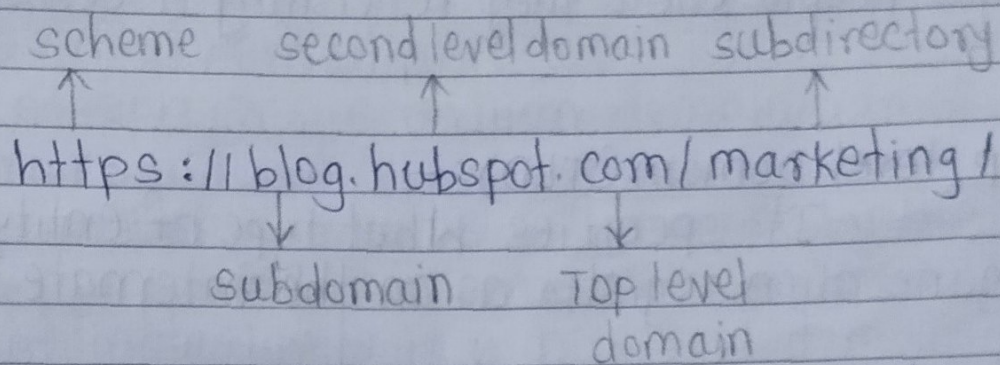 scheme second level domain subdirectory
https://blog.hubspot.com/marketing/
subdomain Top level
domain